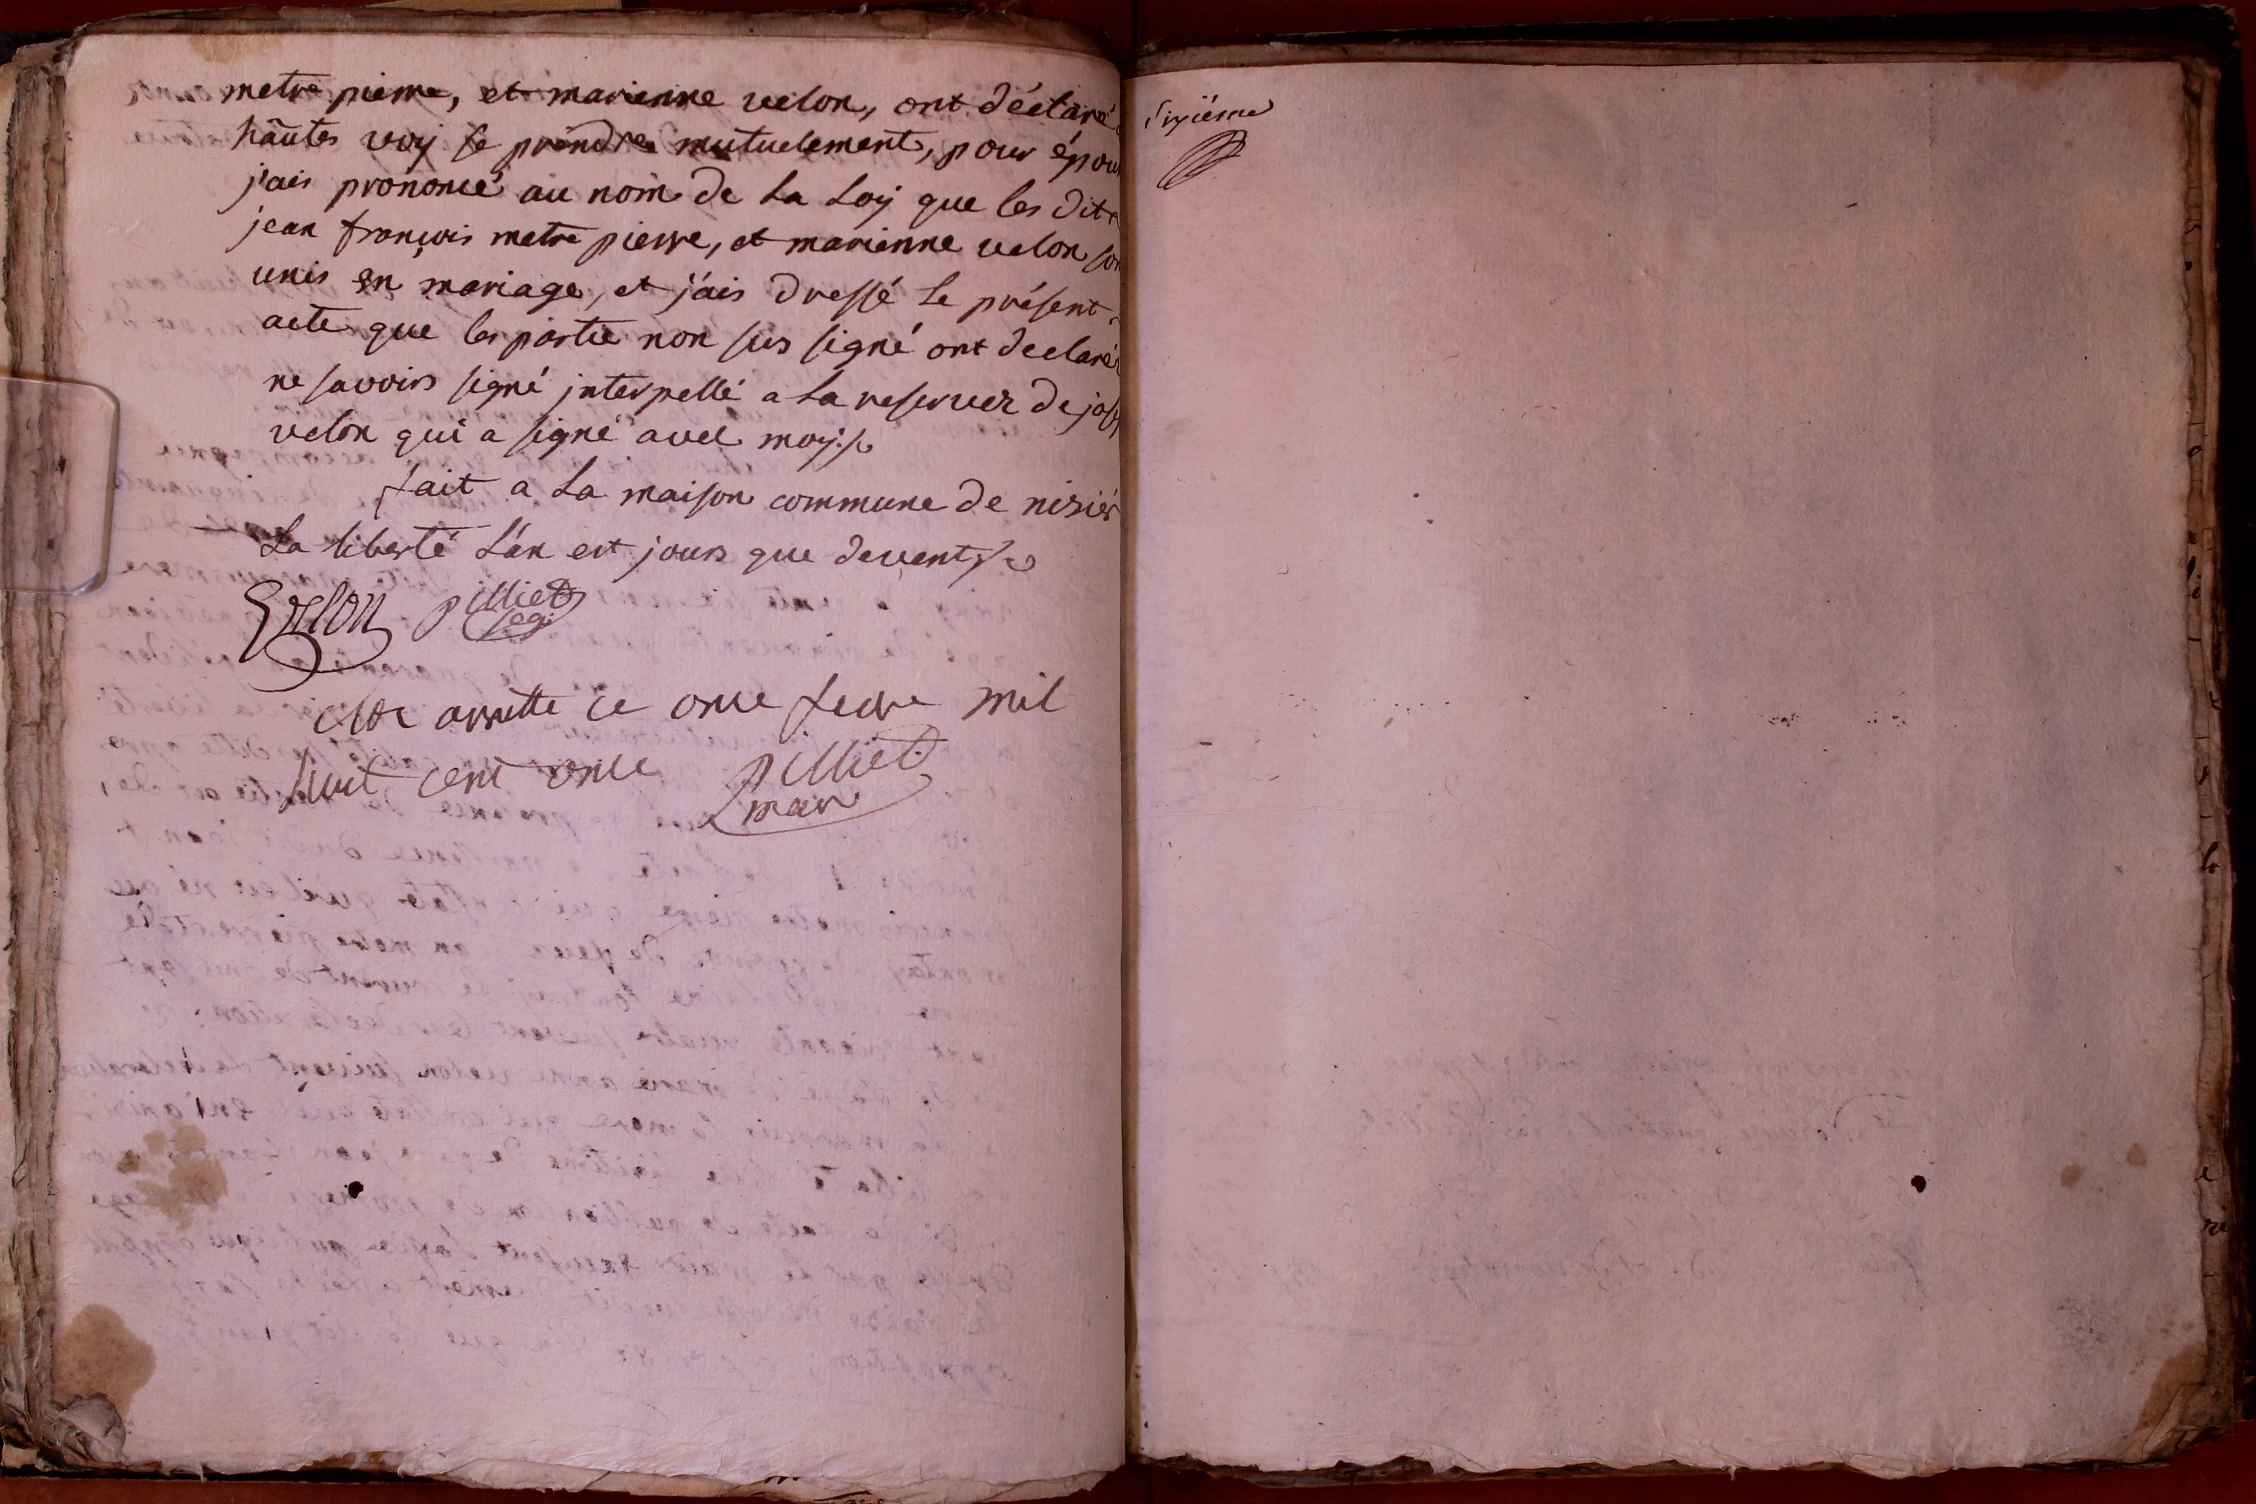 metre pierre, et marienne velon, ont déclaré
hautes voy se prendre mutuelement, pour épou
j'ais prononcé au nom de La Loy que les dit
jean françois metre pierre, et marienne velon son
unis en mariage, et j'ais dressé le présent
acte que les partie non sus signé ont declaré
ne savoirs signé interpellé a la reserver de jos
velon qui a signé avec moy
fait a La maison commune de nisiér
La liberté L'an est jours que devent
Velon pilliet
arrette ce onze mil
huit cent onze pilliet
mair
sixiéme